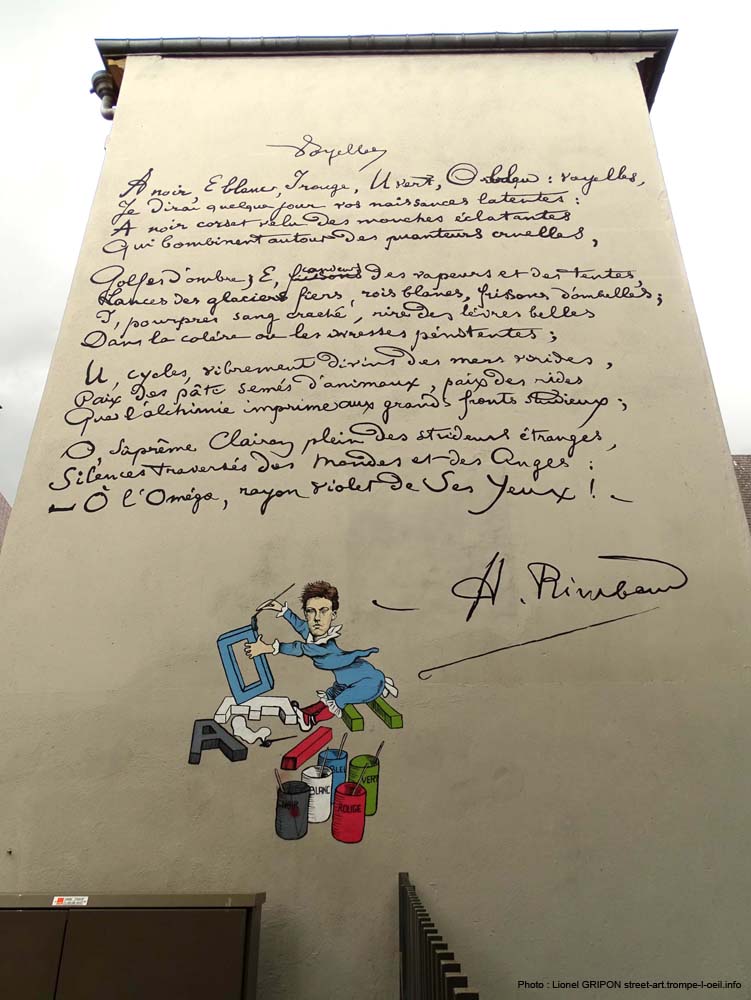 Voyelles
A noir, E blanc, I rouge, U vert, O bleu : voyelles,
Je dirai quelque jour vos naissances latentes :
A noir corset velu des mouches éclatantes
Qui bombinent autour des puanteurs cruelles,
Golfes d'ombre ; E, frissons candeurs des vapeurs et des tentes,
Lances des glaciers fiers, rois blancs, frissons d'ombelles ;
I, pourpres, sang craché, rire des lèvres belles
Dans la colère ou les ivresses pénitentes ;
U, cycles, vibrement divins des mers virides,
Paix des pâtis semés d'animaux, paix des rides
Que l'alchimie imprime aux grands fronts studieux ;
O, Suprême Clairon plein des strideurs étranges,
Silences traversés des Mondes et des Anges :
– Ô l'Oméga, rayon violet de Ses Yeux ! –
– A. Rimbaud
A
BLEU
VERT
BLANC
NOIR
ROUGE
Photo : Lionel GRIPON street-art.trompe-l-oeil.info